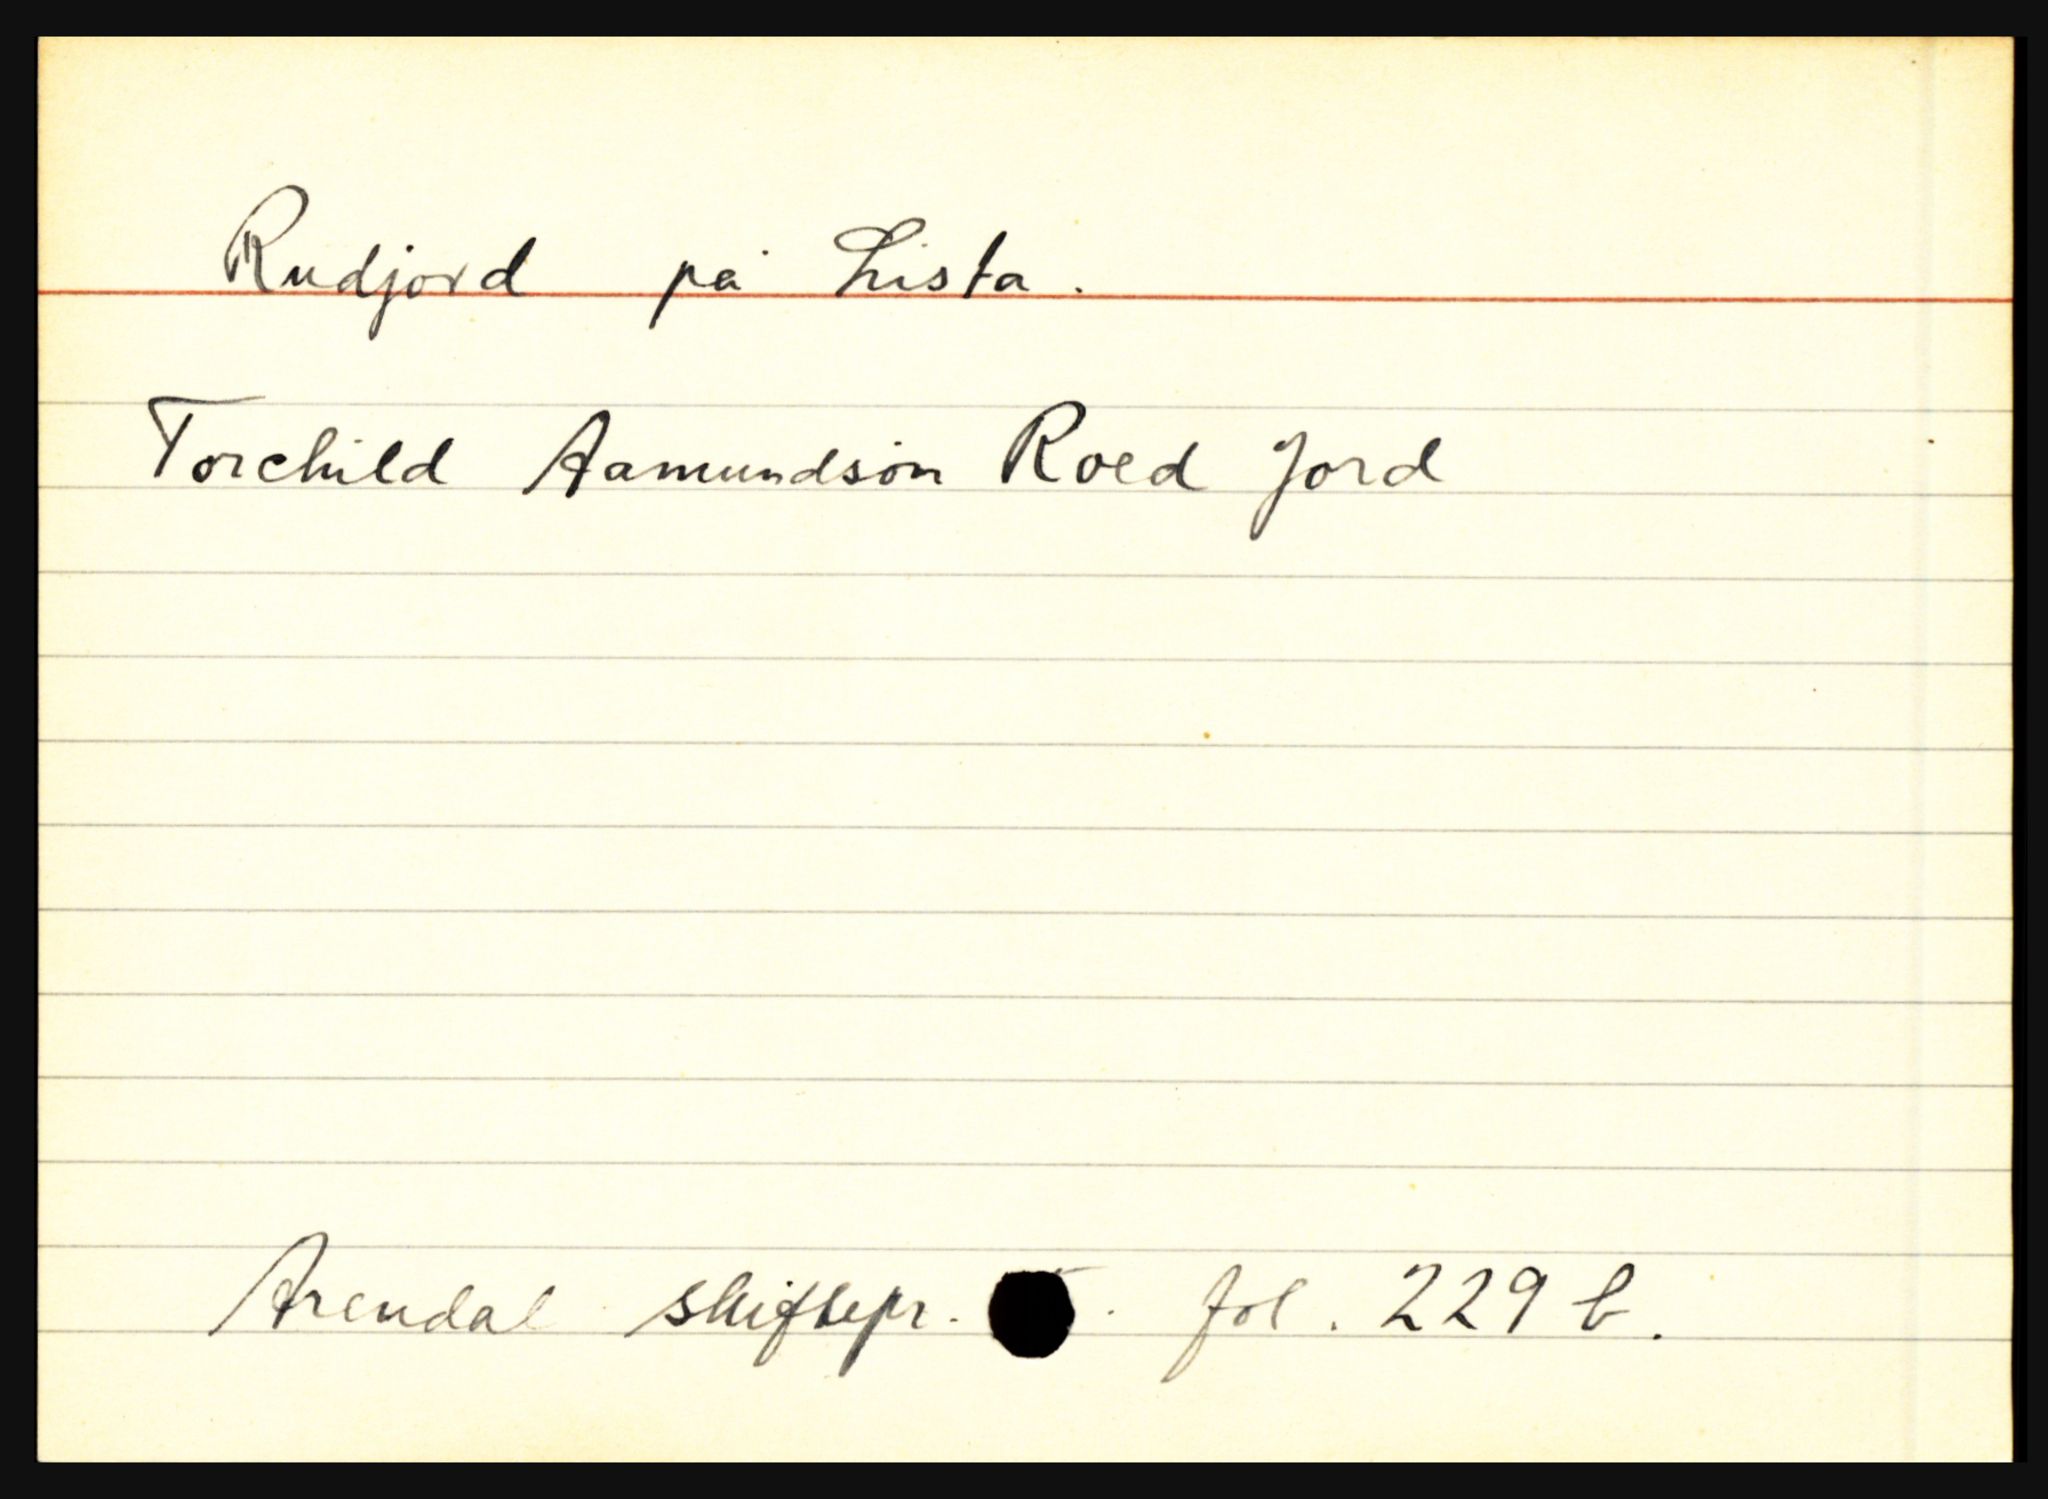 Rudjord på Lista.
Torchild Aamundsøn Roed Jord
Arendal skiftepr. . fol. 229 b.